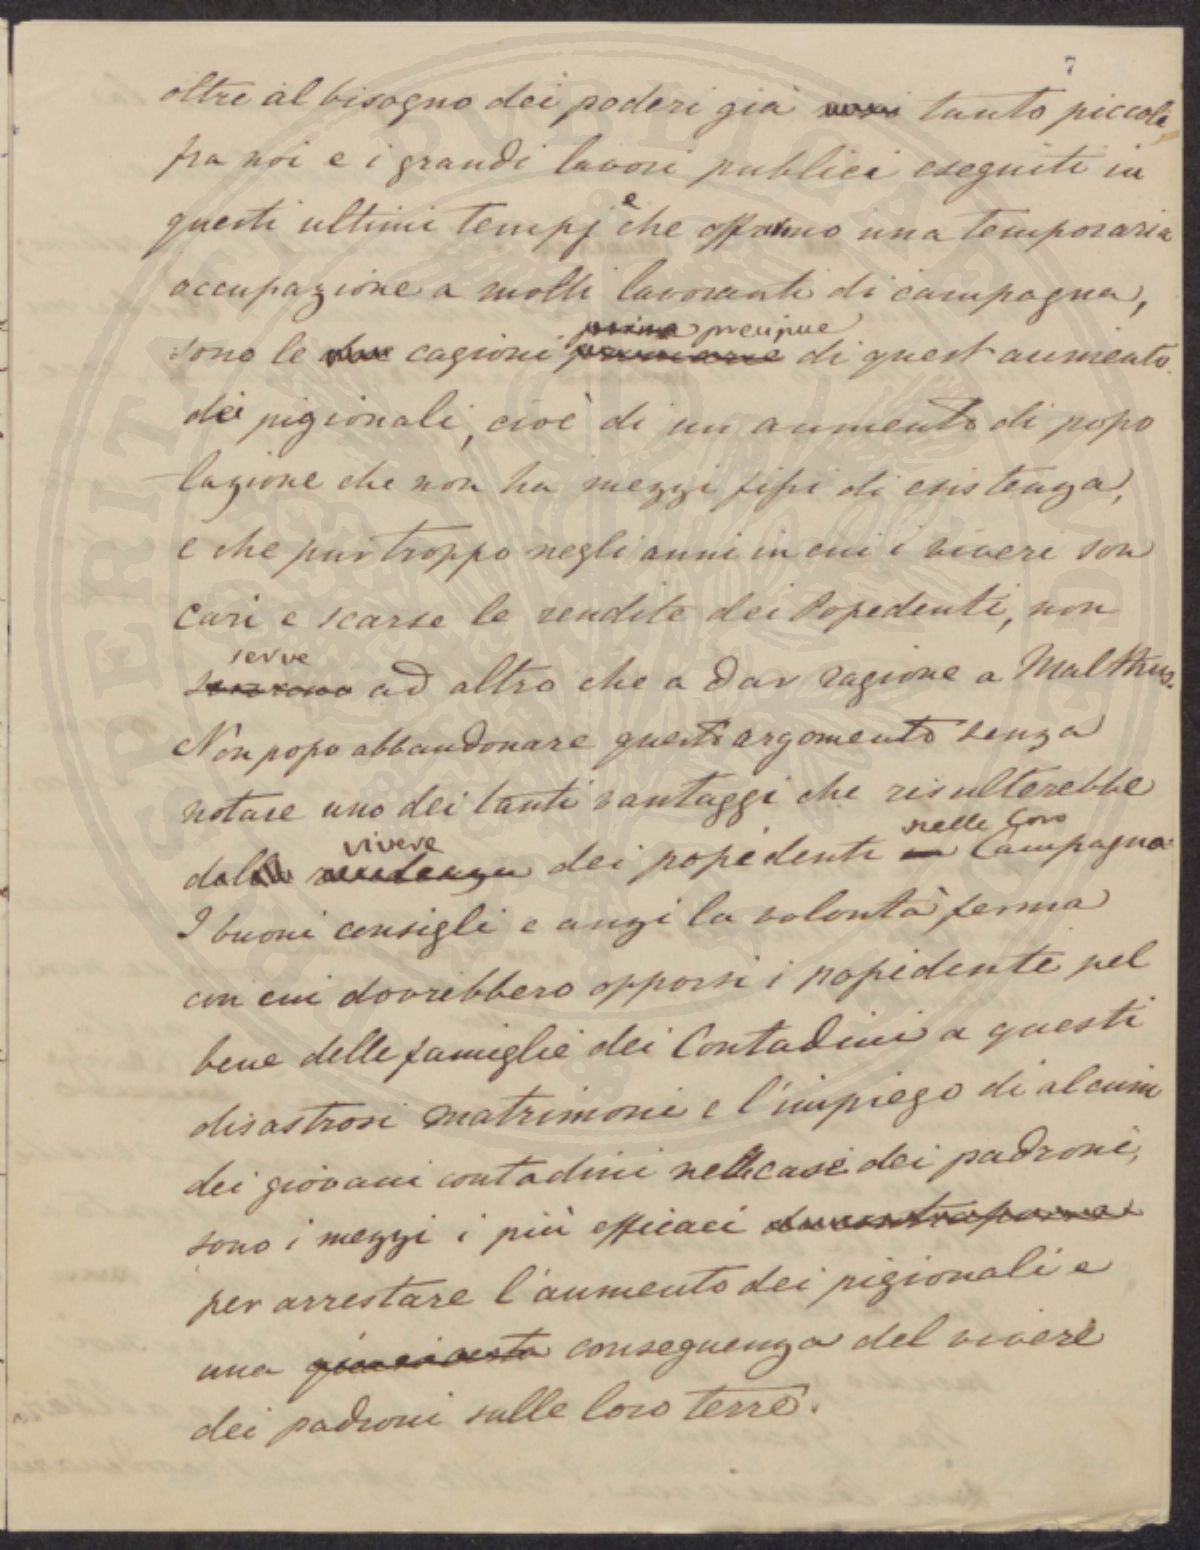 7
oltre al bisogno dei poderi già tanto piccoli
fra noi e i grandi lavori publici eseguiti in
questi ultimi tempj e che offrono una temporaria
occupazione a molti lavoranti di campagna,
prime precipue
sono le due cagioni primarie di quest aumento
dei pigionali, cioè di un aumento di popo
lazione che non ha mezzi fissi di esistenza,
e che pur troppo negli anni in cui i viveri son
cari e scarse le rendite dei Possedenti, non
serve
servono ad altro che a dar ragione a Malthus.
Non posso abbandonare questo argomento senza
notare uno dei tanti vantaggi che risulterebbe
vivere nelle loro
dal residenza dei possidenti in Campagna
I buoni consigli e anzi la volontà ferma
con cui dovrebbero opporsi i possidenti pel
bene delle famiglie dei Contadini a questi
disastrosi matrimoni e l'impiego di alcuni
dei giovani contadini nelle case dei padroni,
sono i mezzi i più efficaci
per arrestare l'aumento dei pigionali e
una conseguenza del vivere
dei padroni sulle loro terre.